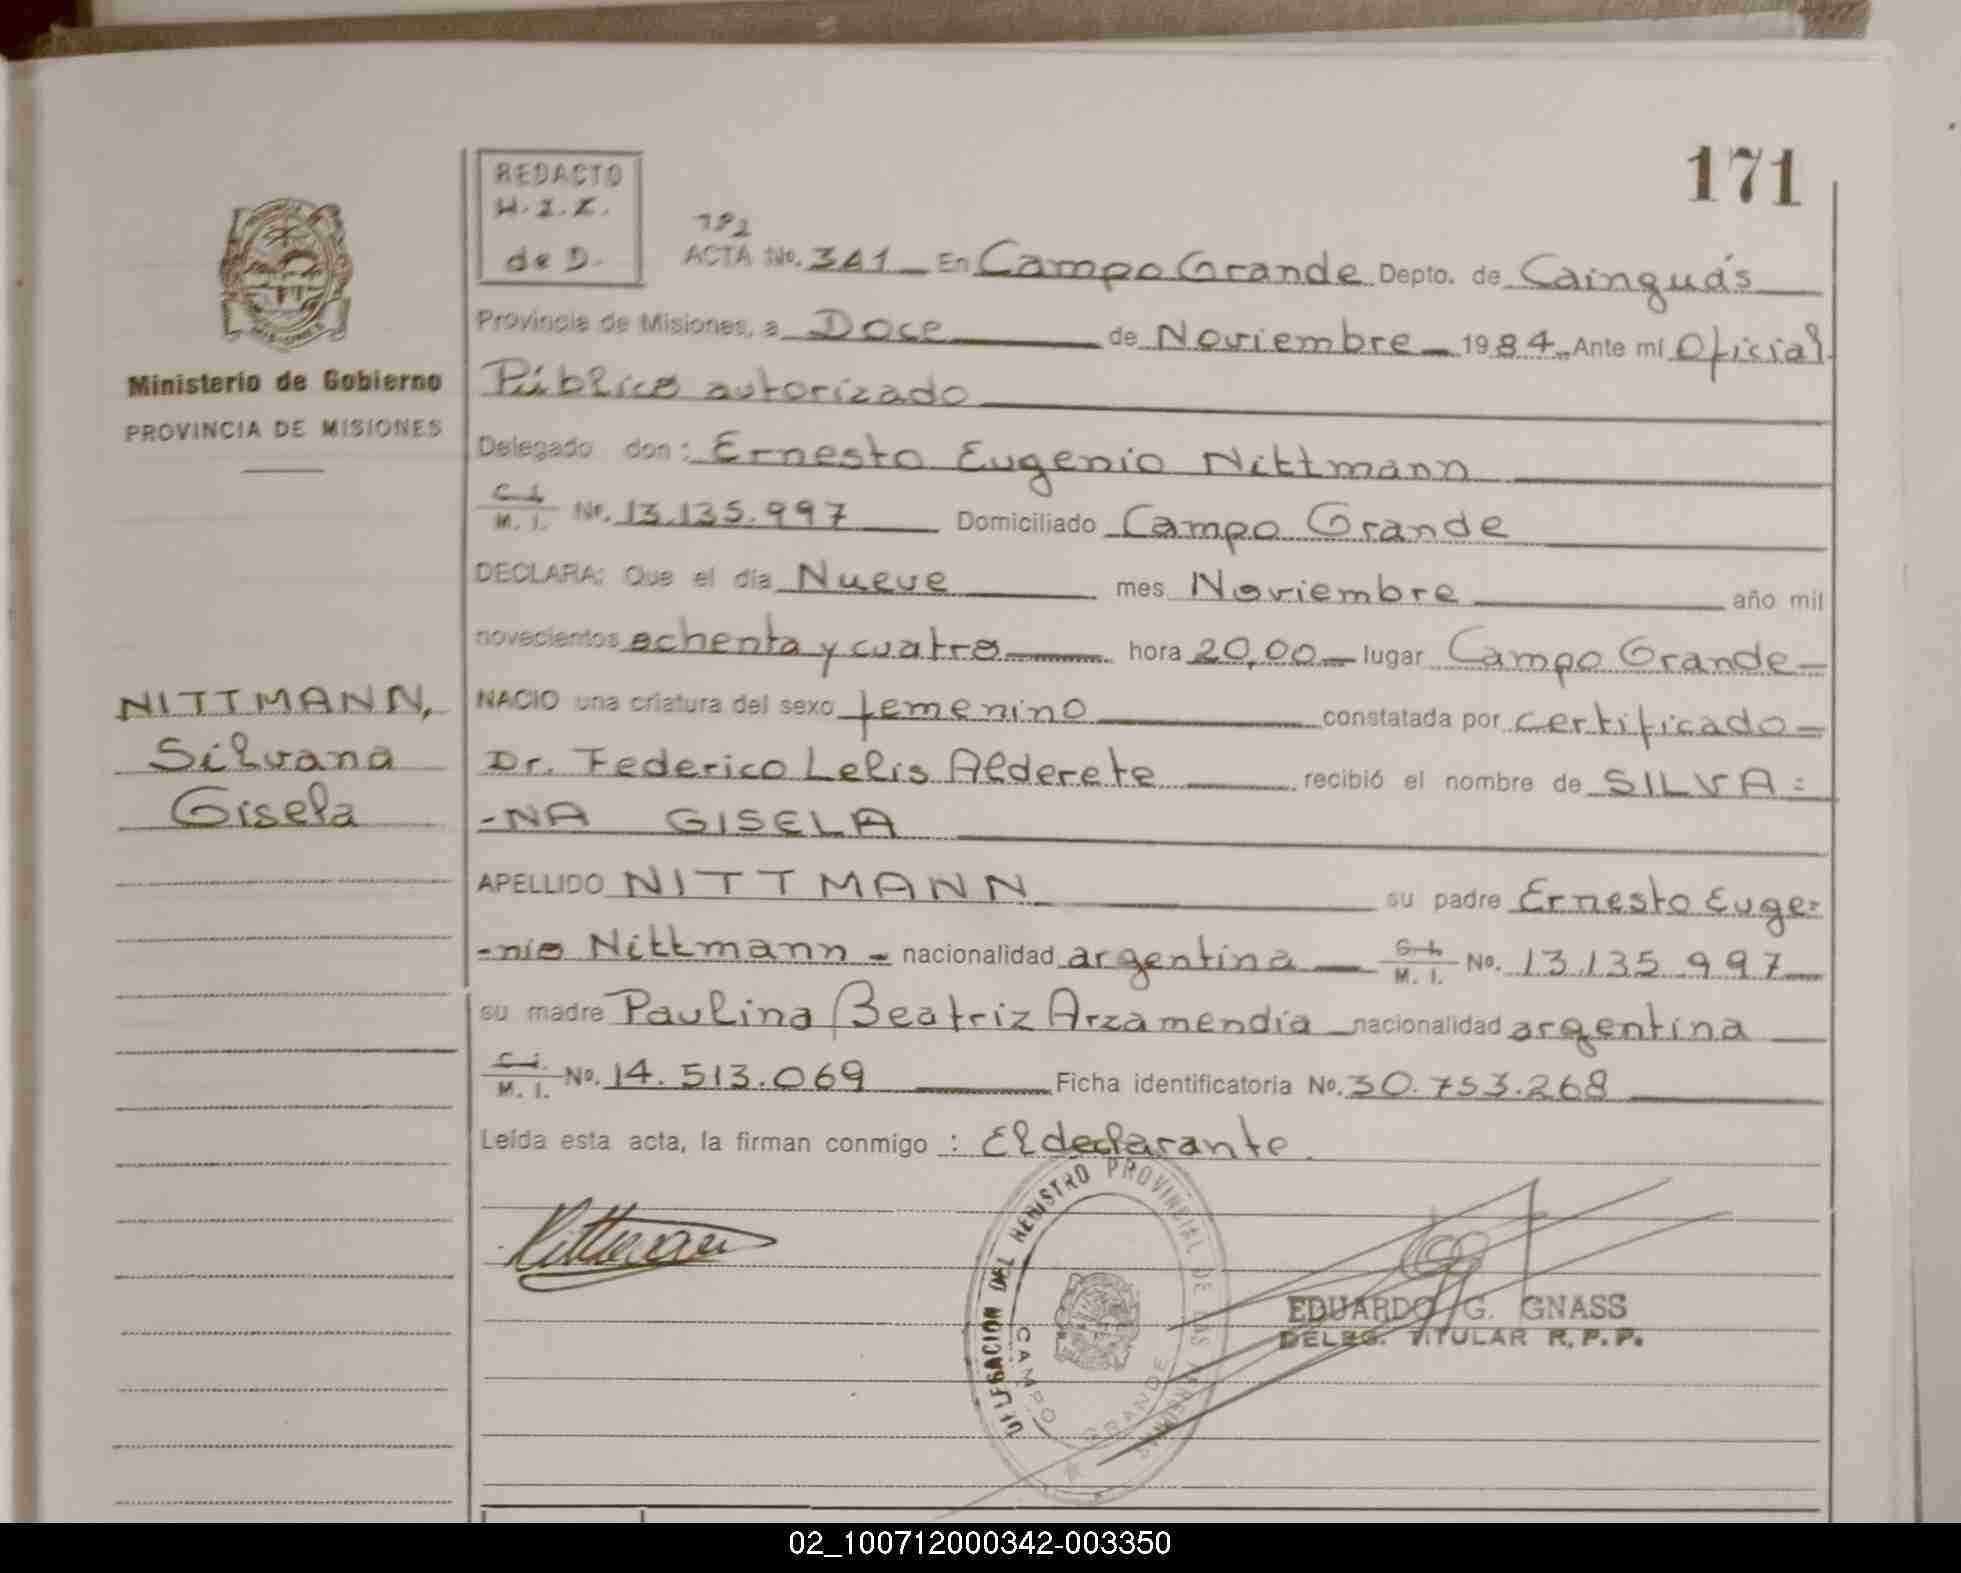 171
REDACTO
H.I.Z.
de D.
ACTA No. 341 En Campo Grande Depto. de Cainguás
Provincia de Misiones, a Doce de Noviembre 1984 Ante mi Oficial
Público autorizado
Delegado don: Ernesto Eugenio Nittmann
C.I.
M. I. No. 13.135.997 Domiciliado Campo Grande
DECLARA: Que el día Nueve mes Noviembre año mil
novecientos ochenta y cuatro hora 20,00 lugar Campo Grande
NACIO una criatura del sexo femenino constatada por certificado
Dr. Federico Lelis Alderete recibió el nombre de SILVA=
-NA GISELA
APELLIDO NITTMANN su padre Ernesto Euge=
-nio Nittmann nacionalidad argentina C.I.
M. I. No. 13.135.997
su madre Paulina Beatriz Arzamendia nacionalidad argentina
C.I.
M. I. No. 14.513.069 Ficha identificatoria No. 30.753.268
Leída esta acta, la firman conmigo : El declarante
Ministerio de Gobierno
PROVINCIA DE MISIONES
NITTMANN,
Silvana
Gisela
Nittmann
DELEGACION DEL REGISTRO PROVINCIAL DE LAS PERSONAS
CAMPO GRANDE
EDUARDO G. GNASS
DELEG. TITULAR R.P.P.
02_100712000342-003350